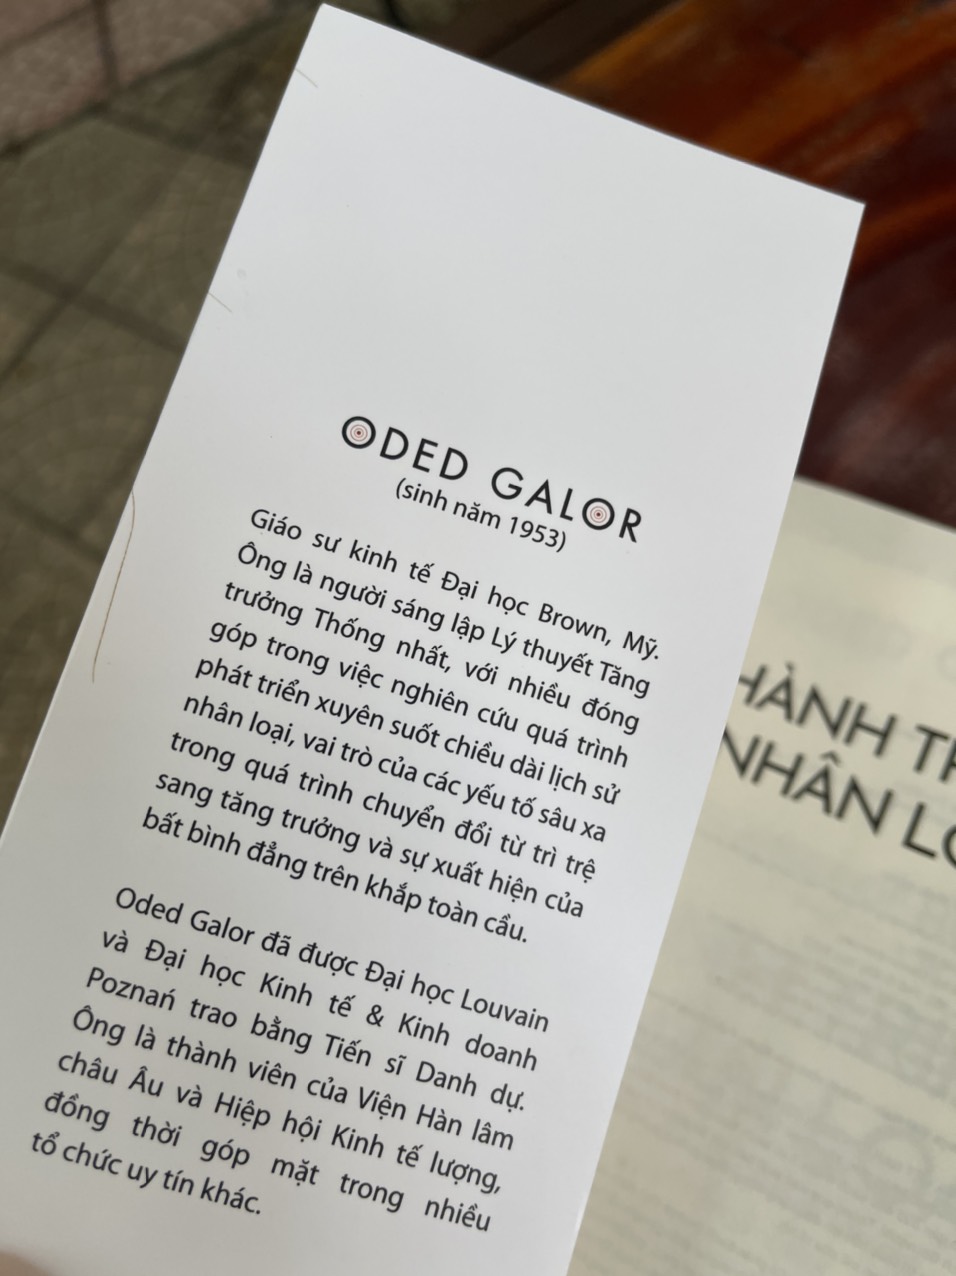 ODED GALOR
(sinh năm 1953)
Giáo sư kinh tế Đại học Brown, Mỹ.
Ông là người sáng lập Lý thuyết Tăng
trưởng Thống nhất, với nhiều đóng
góp trong việc nghiên cứu quá trình
phát triển xuyên suốt chiều dài lịch sử
nhân loại, vai trò của các yếu tố sâu xa
trong quá trình chuyển đổi từ trì trệ
sang tăng trưởng và sự xuất hiện của
bất bình đẳng trên khắp toàn cầu.
Oded Galor đã được Đại học Louvain
và Đại học Kinh tế & Kinh doanh
Poznań trao bằng Tiến sĩ Danh dự.
Ông là thành viên của Viện Hàn lâm
châu Âu và Hiệp hội Kinh tế lượng,
đồng thời góp mặt trong nhiều
tổ chức uy tín khác.
HÀNH TR
NHÂN LO